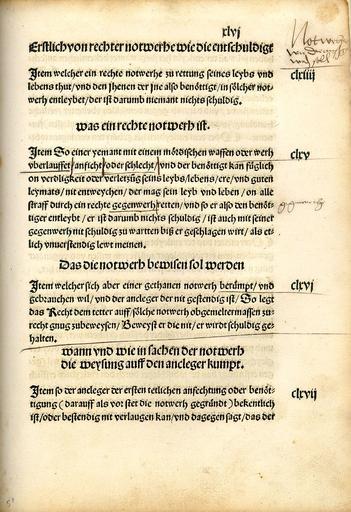 xlvj
Erstlich von rechter notwerhe wie die entschuldigt
Item welcher ein rechte notwerhe zu rettung seines leybs vnd
lebens thut/vnd den jhenen der jne also benötigt/in sölcher not-
werh entleybet/der ist darumb niemant nichts schuldig.
clxiiij
was ein rechte notwerh ist.
Item So einer yemant mit einem mördischen waffen oder werh
vberlauffet/anficht/oder schlecht/vnd der benötigt kan füglich
on verdligkeit oder verletzüg seins leybs/lebens/ere/vnd guten
leymats/nit entweychen/der mag sein leyb vnd leben/on alle
straff durch ein rechte gegenwerh retten/vnd so er also den benöt-
tiger entleybt/er ist darumb nichts schuldig/ist auch mit seiner
gegenwerh nit schuldig zu wartten biß er geschlagen wirt/als et-
lich vnuerstendig lewt meinen.
clxv
Das die notwerh bewisen sol werden
Item welcher sich aber einer gethanen notwerh berümpt/vnd
gebrauchen wil/vnd der ancleger der nit gestendig ist/So legt
das Recht dem tetter auff/sölche notwerh obgemeltermassen zu-
recht gnug zubeweysen/Beweyst er die nit/er wirdt schuldig ge-
halten.
clxvj
wann vnd wie in sachen der notwerh
die weysung auff den ancleger kumpt.
Item so der ancleger der ersten tetlichen anfechtung oder benöt-
tigung (darauff als vor stet die notwerh gegründt) bekentlich
ist/oder bestendig nit verlaugen kan/vnd dagegen sagt/das der
clxvij